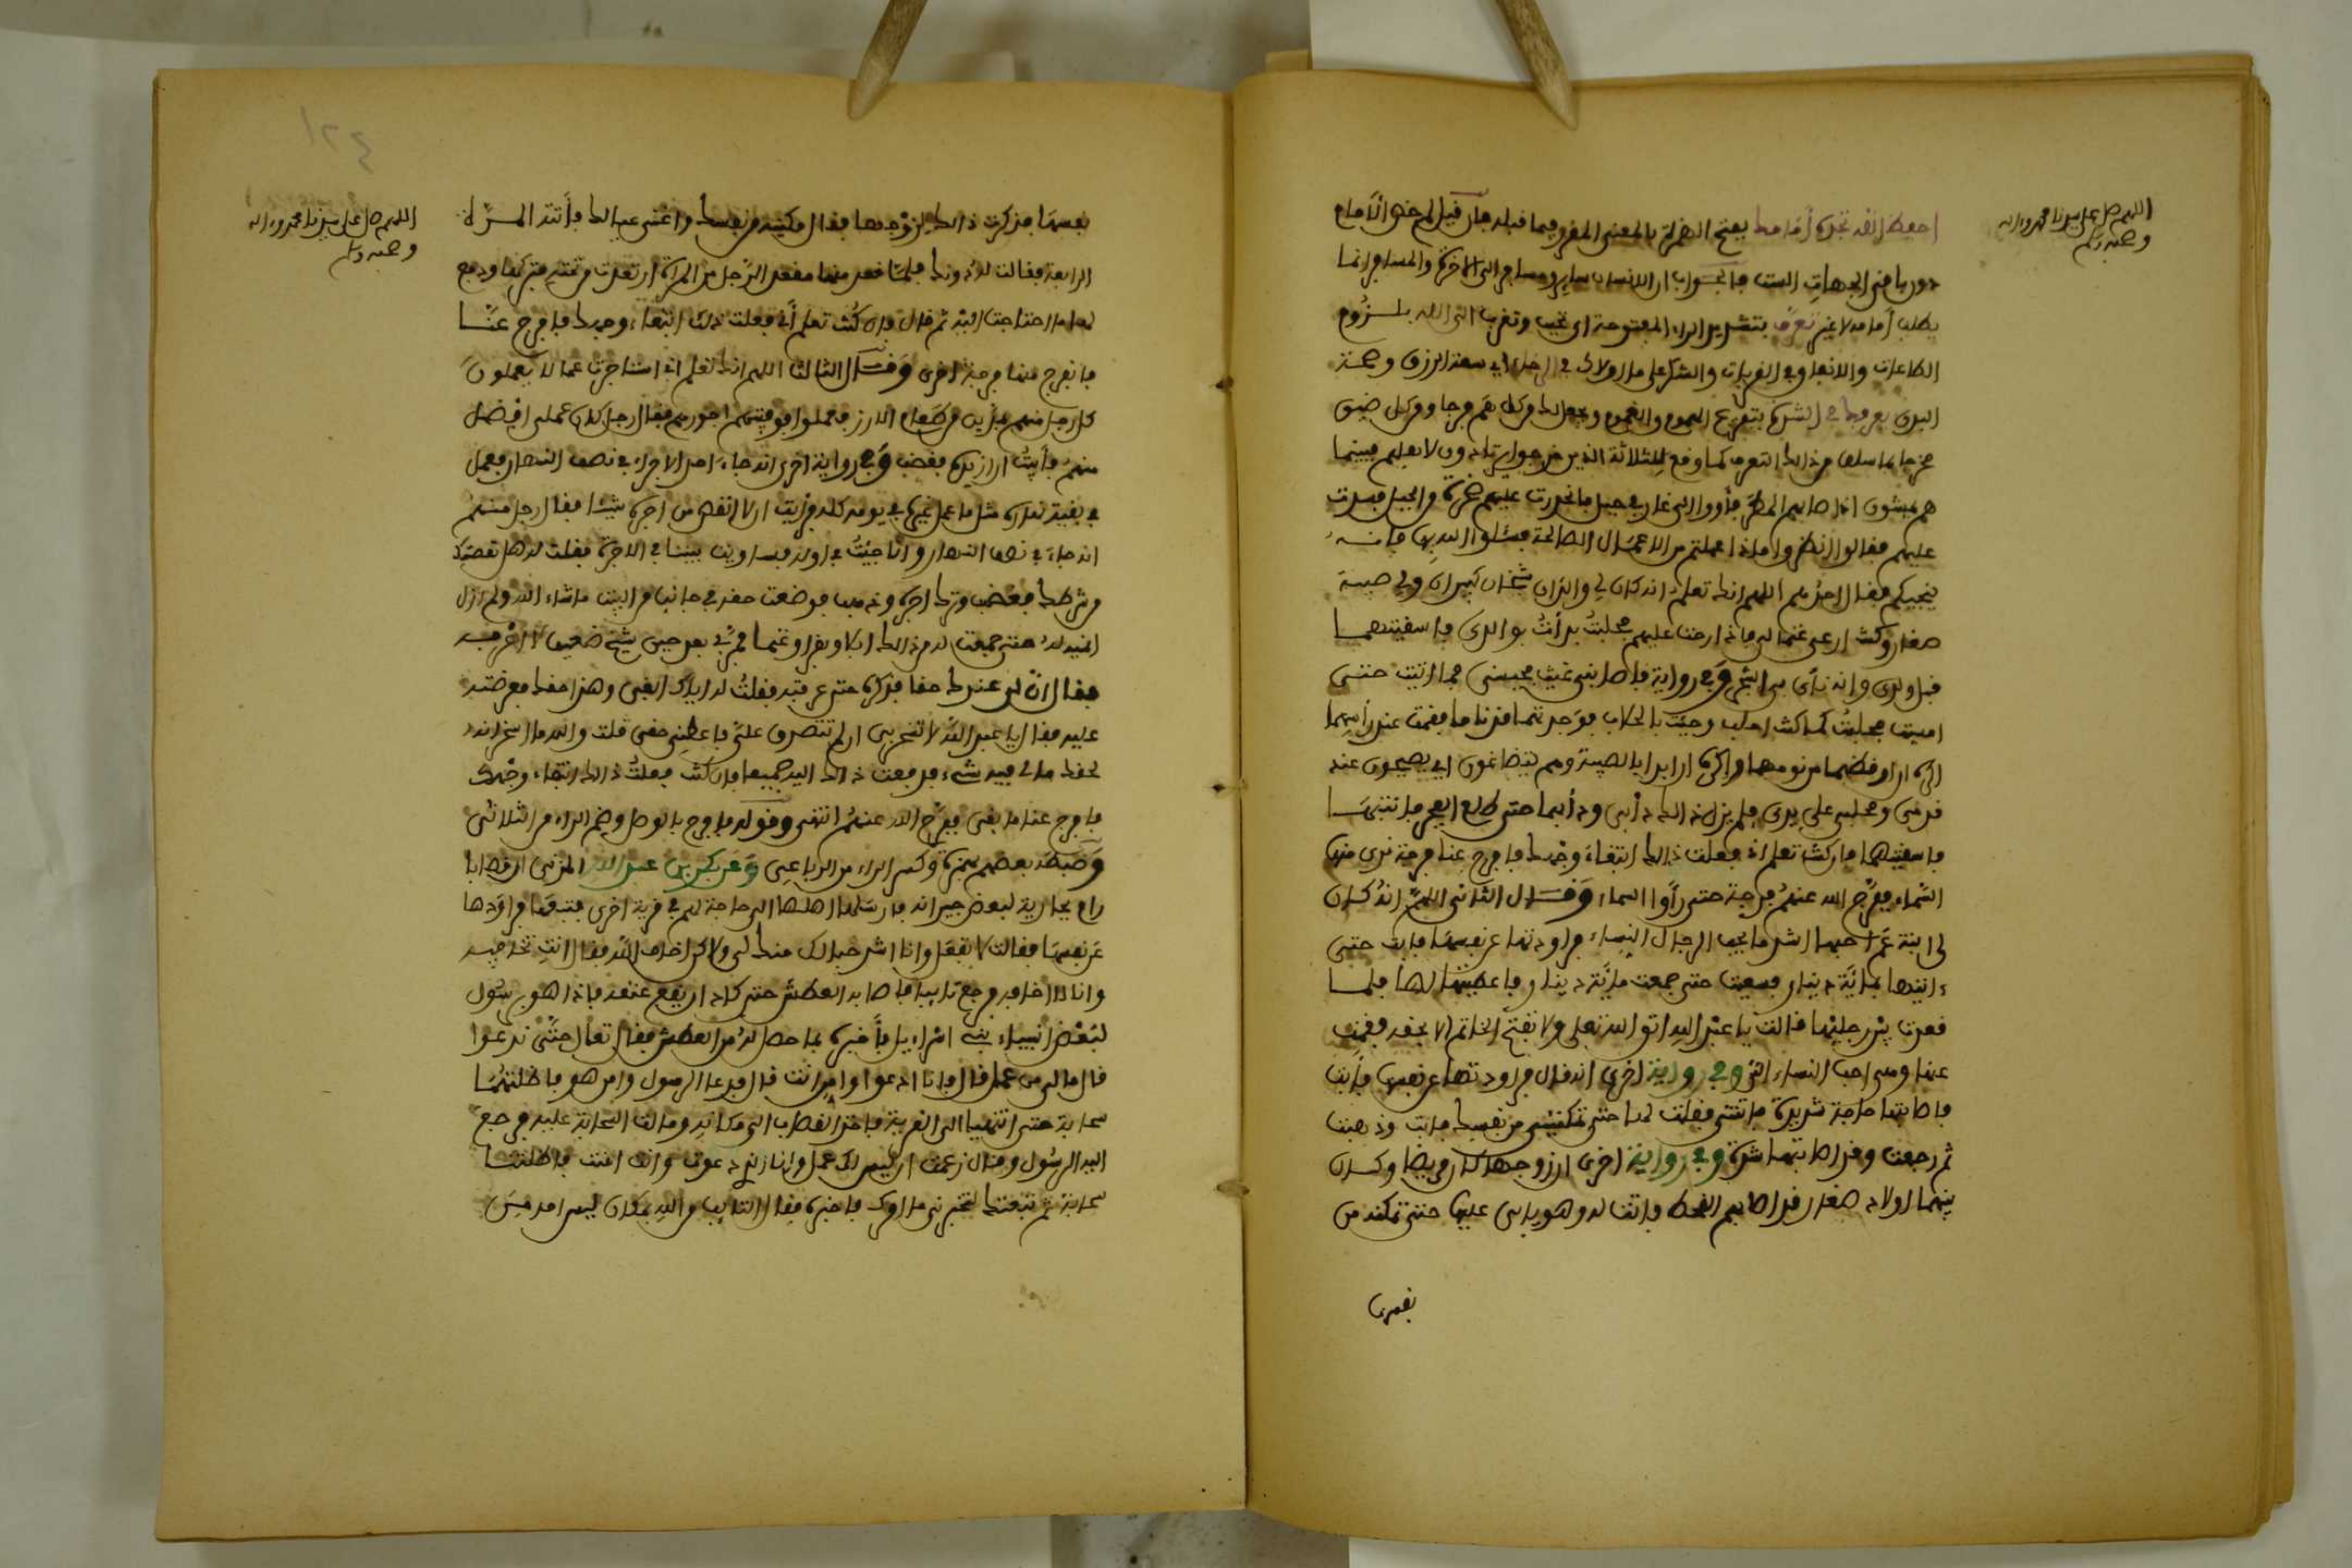 اللهم صل على سيدنا محمد وءاله
وصحبه وسلم
احفظ الله تجده أمامك بفتح الهمزة بالمعنى المقرر فيما قبله فإن قيل لم خص الأمام
دون باقي الجهات الست فالجواب ان الانسان سائر ومسافر الى الاخرة والمسافر انما
يطلب أمامه لا غير تعرف بتشديد الراء المفتوحة اي تحبب وتقرب الى الله بلزوم
الطاعات والانفاق في القربات والشكر على ما اولاك في الرخاء اي سعة الرزق وصحة
البدن يعرفك في الشدة بتفريج الهموم والغموم ويجعل لك من كل هم فرجا ومن كل ضيق
مخرجا بما سلف من ذلك التعرف كما وقع للثلاثة الذين خرجوا يرتادون لاهليهم فبينما
هم يمشون اذ اصابهم المطر فأووا الى غار في جبل فانحدرت عليهم صخرة من الجبل فسدت
عليهم فقالوا انظروا ماذا عملتم من الاعمال الصالحة فسئلوا الله بها فانه
ينجيكم فقال احدهم اللهم انك تعلم انه كان لي والدان شيخان كبيران ولي صبية
صغار وكنت ارعى غنما لي فاذا ارحت عليهم فحلبت بدأت بوالدي فاسقيتهما
قبل ولدي وانه نأى بي الشجر وفي رواية فاصابني غيث فحبسني فما اتيت حتى
امسيت فحلبت كما كنت احلب وجئت بالحلاب فوجدتهما قد ناما فقمت عند رأسهما
اكره ان اوقظهما من نومهما واكره ان ابدأ بالصبية وهم يتضاغون اي يصيحون عند
قدمي ومحلبي على يدي فلم يزل ذلك دأبي ودأبهما حتى طلع الفجر فانتبها
فاسقيتهما فان كنت تعلم اني فعلت ذلك ابتغاء وجهك فافرج عنا فرجة نرى منها
السماء ففرج الله عنهم فرجة حتى رأوا السماء وقال الثاني اللهم انه كان
لي ابنة عم احبها اشد ما يحب الرجال النساء فراودتها عن نفسها فابت حتى
ءاتيها بمائة دينار فسعيت حتى جمعت مائة دينار فاعطيتها لها فلما
قعدت بين رجليها قالت يا عبد الله اتق الله تعلى ولا تفتح الخاتم الا بحقه فقمت
عنها وهي احب النساء الي وفي رواية اخرى انه قال فراودتها عن نفسها فأبت
فاصابتها حاجة شديدة فاتتني فقلت لها حتى تمكنيني من نفسك فابت وذهبت
ثم رجعت وقد اصابتها شدة وفي رواية اخرى ان زوجها كان مريضا وكان
بينهما اولاد صغار فلما اصابهم القحط فاتت له وهو يابى عليها حتى تمكنه من
نفسها
اللهم صل على سيدنا محمد وءاله
وصحبه وسلم
نفسها فذكرت ذلك لزوجها فقال مكنيه من نفسك واغني عيالك فأتته المرة
الرابعة فقالت له دونك فلما قعد منها مقعد الرجل من المرأة ارتعدت من تحته فتركها ودفع
لها ما احتاجت اليه ثم قال فان كنت تعلم أني فعلت ذلك ابتغاء وجهك فافرج عنا
فانفرج منها فرجة اخرى وقال الثالث اللهم انك تعلم اني استاجرت عمالا يعملون
كل رجل منهم بمدين من طعام الارز فعملوا فوفيتهم اجورهم فقال رجل كان عملي افضل
منهم فأبيت ان ازيده فغضب وفي رواية اخرى انه جاء احد الاجراء في نصف النهار فعمل
في بقية نهاره مثل ما عمل غيره في يومه كله فرأيت ان لا انقص من اجره شيئا فقال رجل منهم
انه جاء في نصف النهار وانا جئت في اوله فساويت بيننا في الاجرة فقلت له هل نقصتك
من شرطك فغضب وترك اجره وذهب فوضعت حقه في جانب من البيت ما شاء الله ولم ازل
انميه له حتى جمعت له من ذلك ابلا وبقرا وغنما فمر بي بعد حين شيخ ضعيف لا اعرفه
فقال ان لي عندك حقا فذكره حتى عرفته فقلت له اياك ابغي وهذا حقك فعرضته
عليه فقال يا عبد الله لا تسخر بي ان لم تتصدق علي فاعطني حقي قلت والله ما اسخر انه
لحقك مالي فيه شيء فدفعت ذلك اليه جميعا فان كنت فعلت ذلك ابتغاء وجهك
فافرج عنا ما بقي ففرج الله عنهم انتهى وقوله فافرج بالوصل وضم الراء من الثلاثي
وضبطه بعضهم بهمزة وكسر الراء من الرباعي وعن بكر بن عبد الله المزني ان قصابا
ولع بجارية لبعض جيرانه فارسلها اهلها الى حاجة لهم في قرية اخرى فتبعها فراودها
عن نفسها فقالت لا تفعل وانا اشد حبا لك منك لي ولاكن اخاف الله فقال انت تخافيه
وانا لا اخافه فرجع تائبا فاصابه العطش حتى كاد ان يقع عنقه فاذا هو برسول
لبعض انبياء بني اسراءيل فأخبره بما حصل له من العطش فقال تعال حتى ندعوا
قال مالي من عمل قال فانا ادعوا وامن انت قال فدعا الرسول وامن هو فاظلتهما
سحابة حتى انتهيا الى القرية فاخذ القصاب الى مكانه ومالت السحابة عليه فرجع
اليه الرسول وقال زعمت ان ليس لك عمل وانا الذي دعوت وانت امنت فاظلتنا
سحابة ثم تبعتك لتخبرني ما امرك فاخبره فقال التائب من الله بمكان ليس احد من